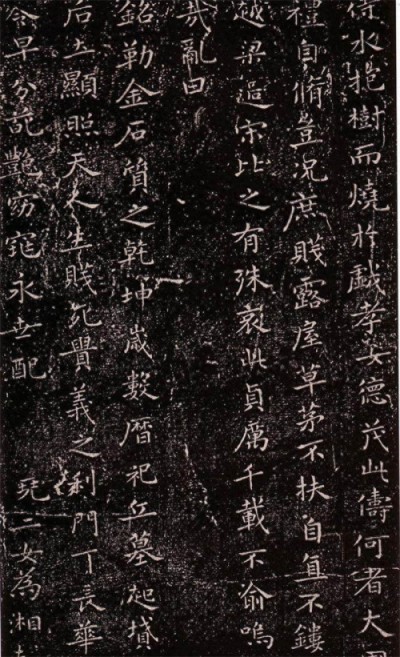 待水抱樹而燒於戲孝女德茂此儔何者大
禮自脩豈況庶賤露屋草茅不扶自直不鏤
越梁過宋比之有殊哀此貞厲千載不俞嗚
哉亂曰
銘勒金石質之乾坤歲數曆祀丘墓起墳
后土顯照天人生賤死貴義之利門丁長華
令早分葩艷窈窕永世配 堯二女為湘